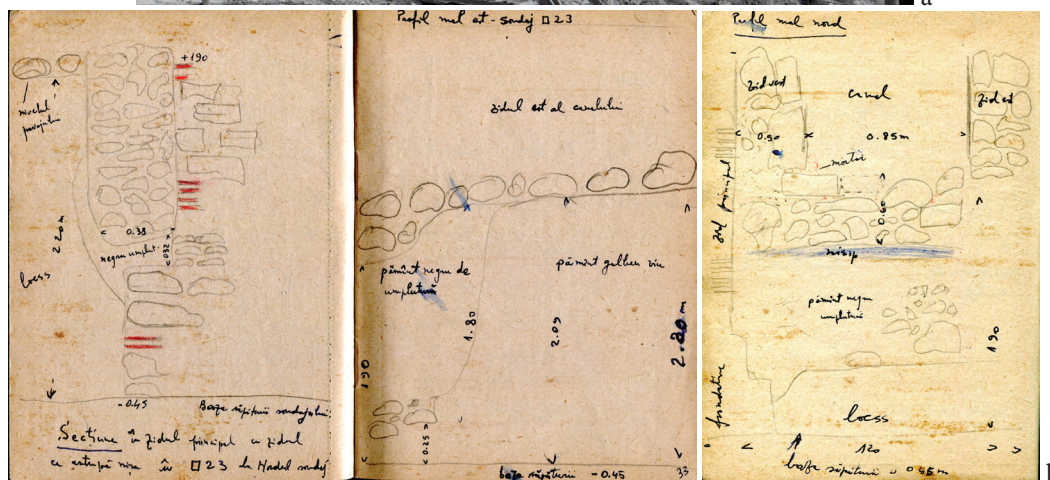 a
+190
nivelul
pavajului
2.20 m
0.38
negru umplut.
0.32
loess
-0.45
Baza săpăturii sondajului
Secțiune în zidul principal cu zidul
ce astupă nișa în □ 23 la Nordul sondaj
Profil mal est - sondaj □ 23
zidul est al canalului
pămînt negru de
umplutură
pămînt galben viu
190
1.80
2.09
2.20 m
0.25
baza săpăturii -0.45
33
Profil mal nord
zid vest
canal
zid est
0.50
0.85 m
mortar
zid principal
0.60
nisip
pămînt negru
umplutură
190
fundație
loess
120
baza săpăturii - 0.45 m
b